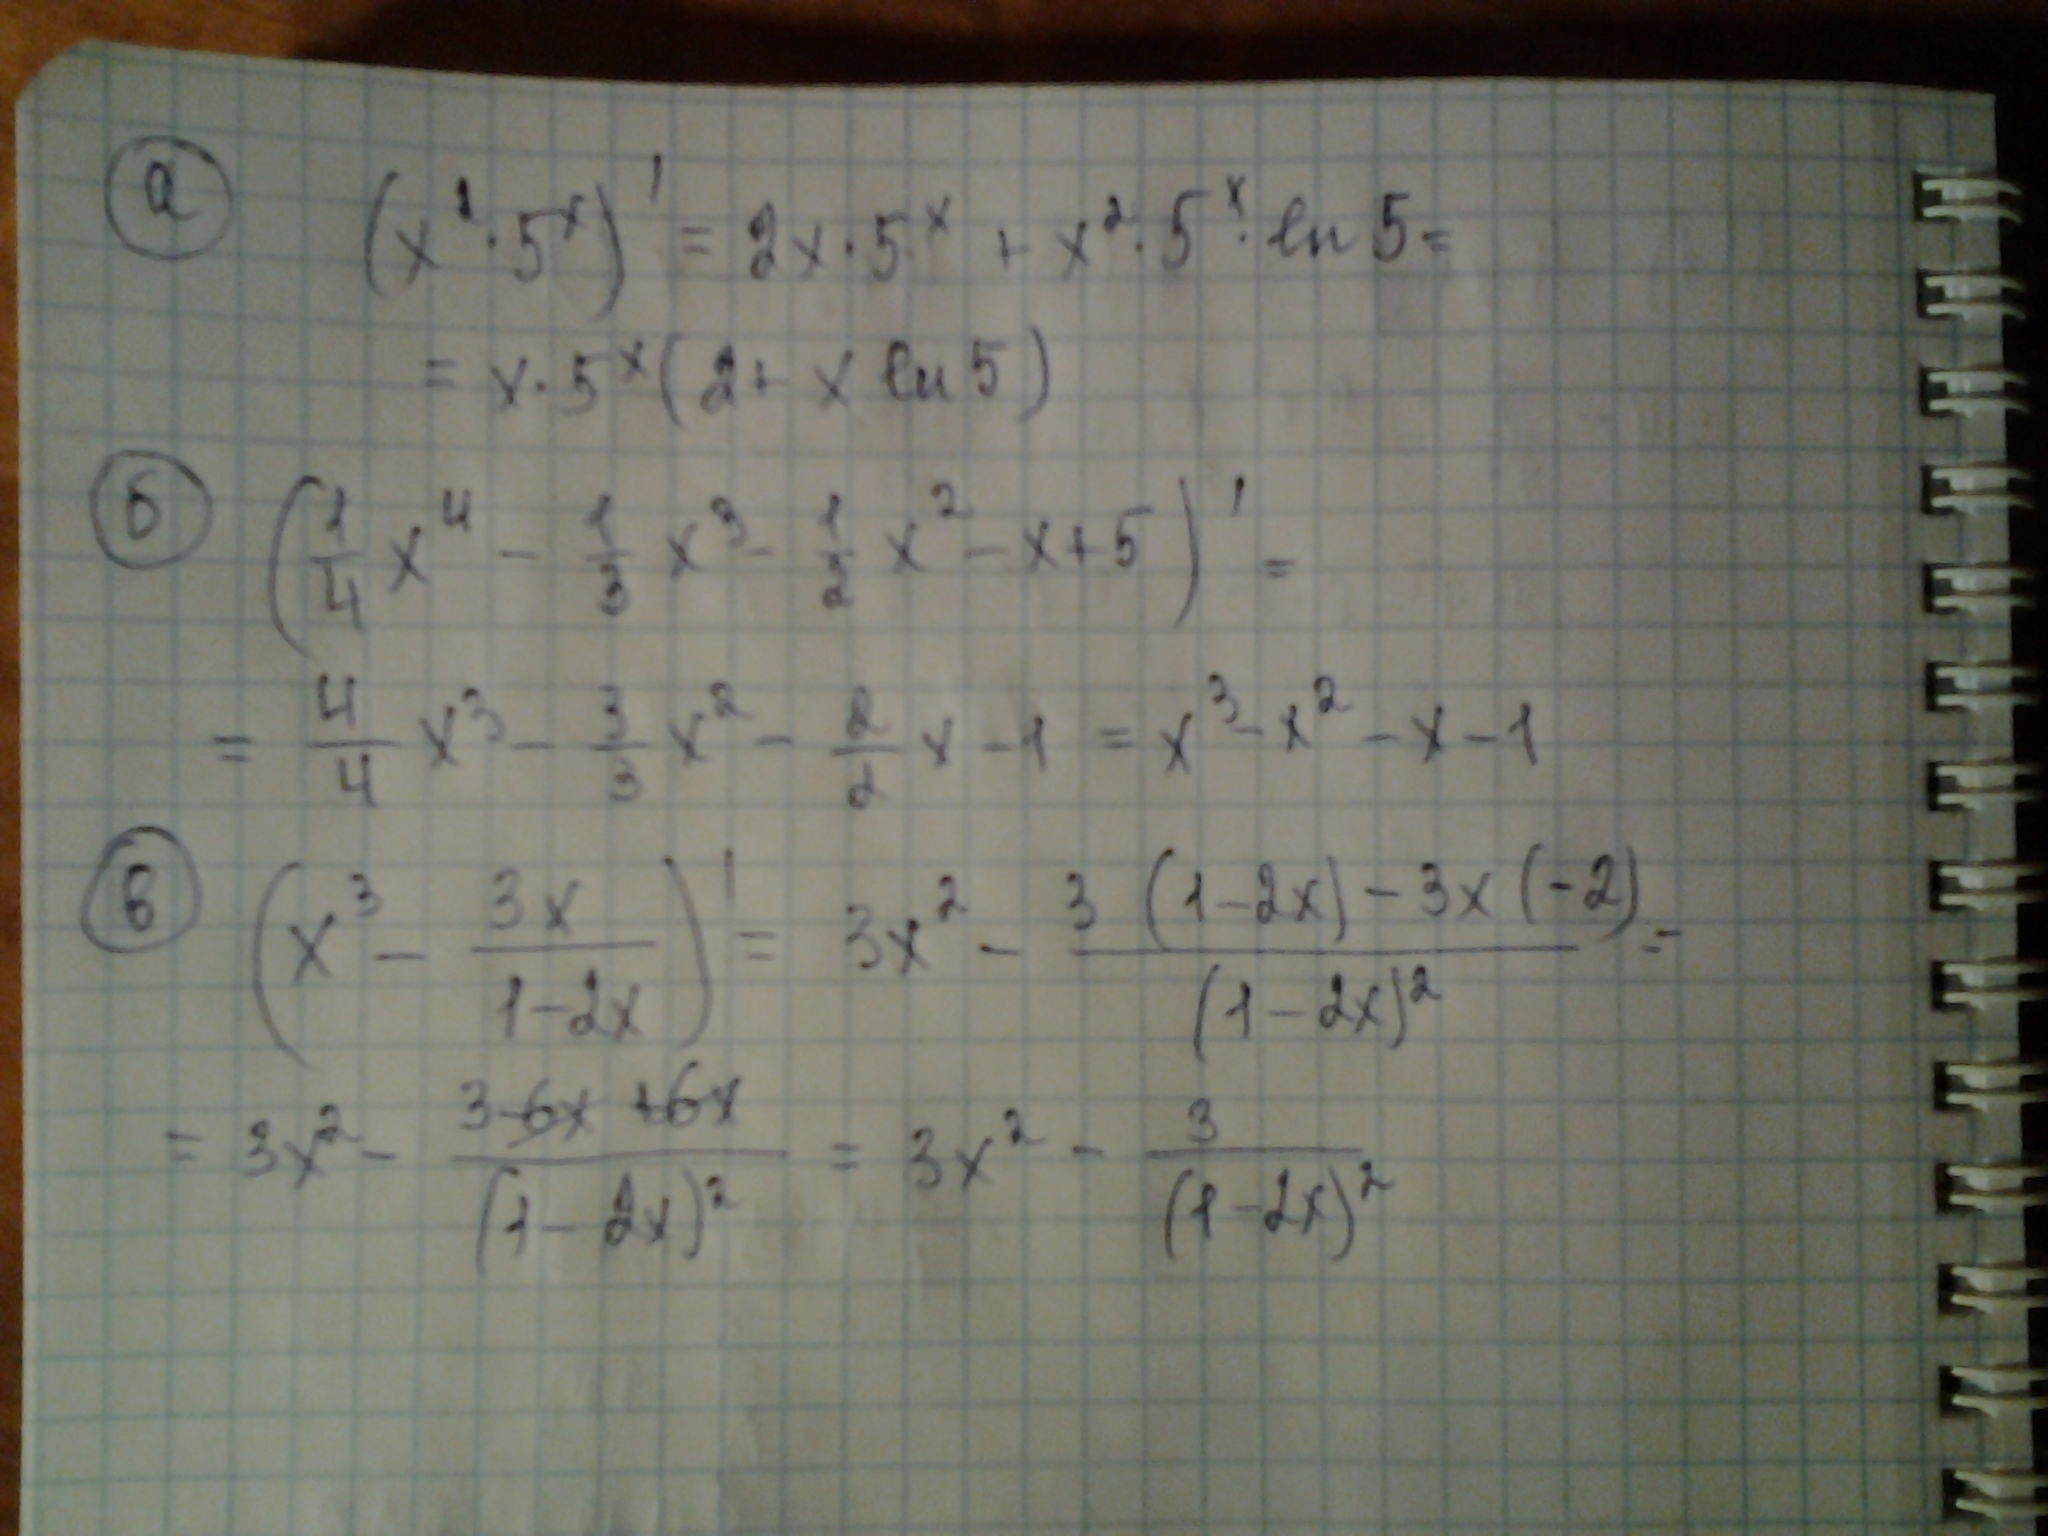 а (x² · 5ˣ)' = 2x · 5ˣ + x² · 5ˣ · ln 5 =
= x · 5ˣ (2 + x ln 5)
б (1/4 x⁴ − 1/3 x³ − 1/2 x² − x + 5)' =
= 4/4 x³ − 3/3 x² − 2/2 x − 1 = x³ − x² − x − 1
в (x³ − 3x/(1−2x))' = 3x² − (3(1−2x) − 3x(−2))/(1−2x)² =
= 3x² − (3−6x+6x)/(1−2x)² = 3x² − 3/(1−2x)²